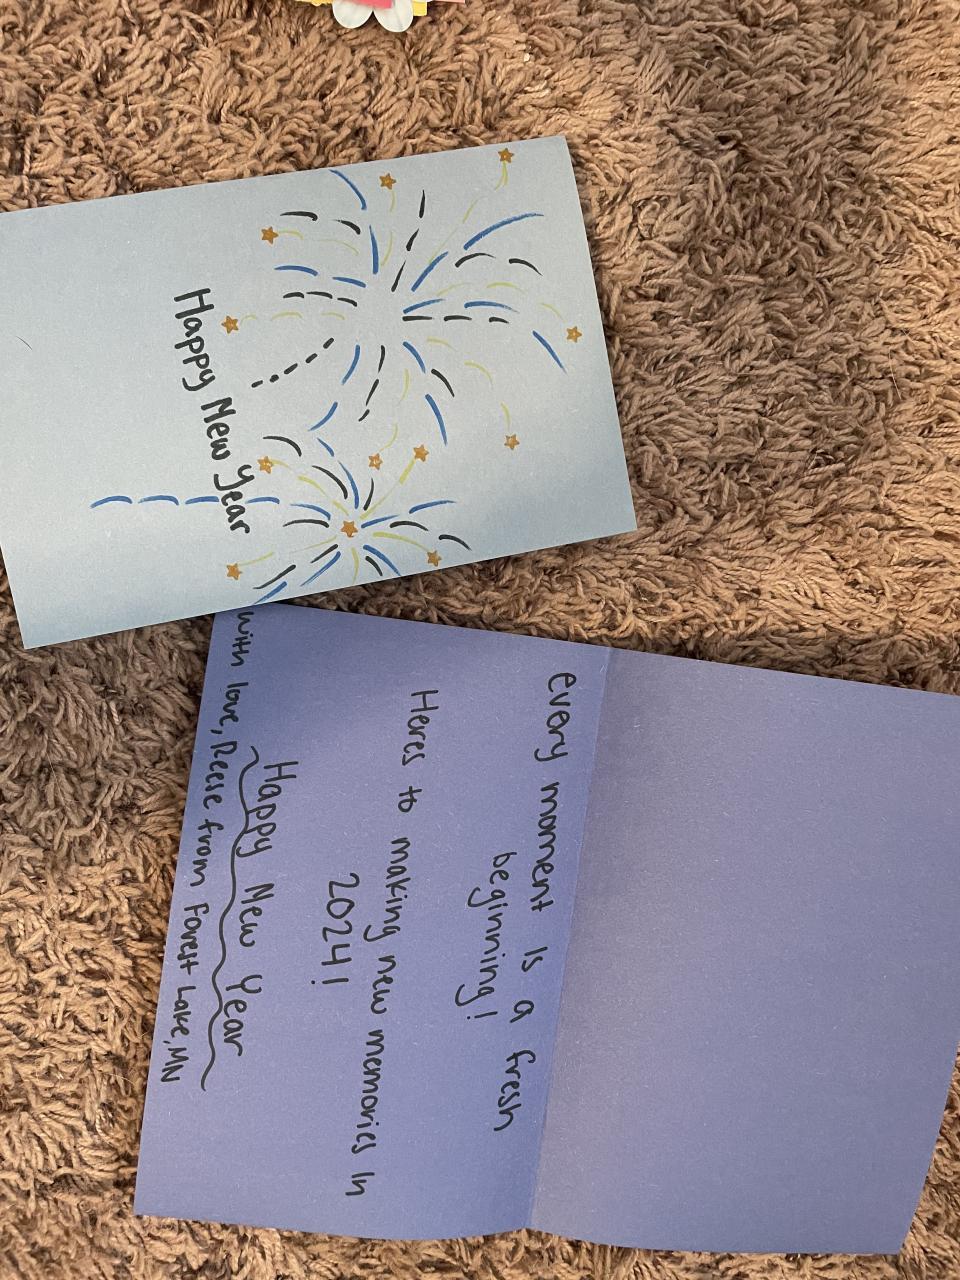 Happy New Year
every moment is a fresh
beginning!
Heres to making new memories in
2024!
Happy New Year
with love, Reese from Forest Lake, MN